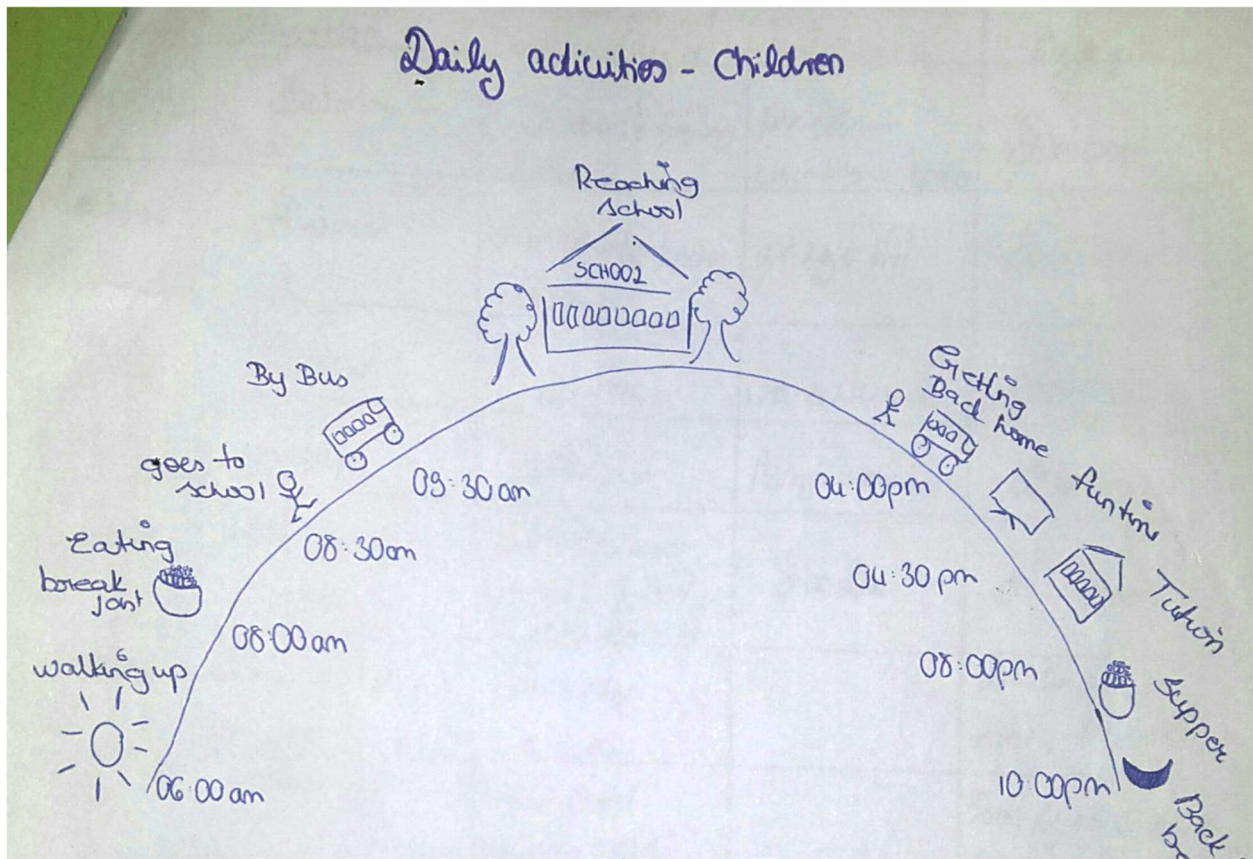 Daily adicuities - Children
Reaching
school
SCHOOL
By Bus
goes to
school
09:30 am
08:30am
Eating
break
jant
08:00am
walking up
06:00am
Getting
Back home
04:00pm
fun time
04:30 pm
Tution
08:00pm
Supper
10:00pm
Back